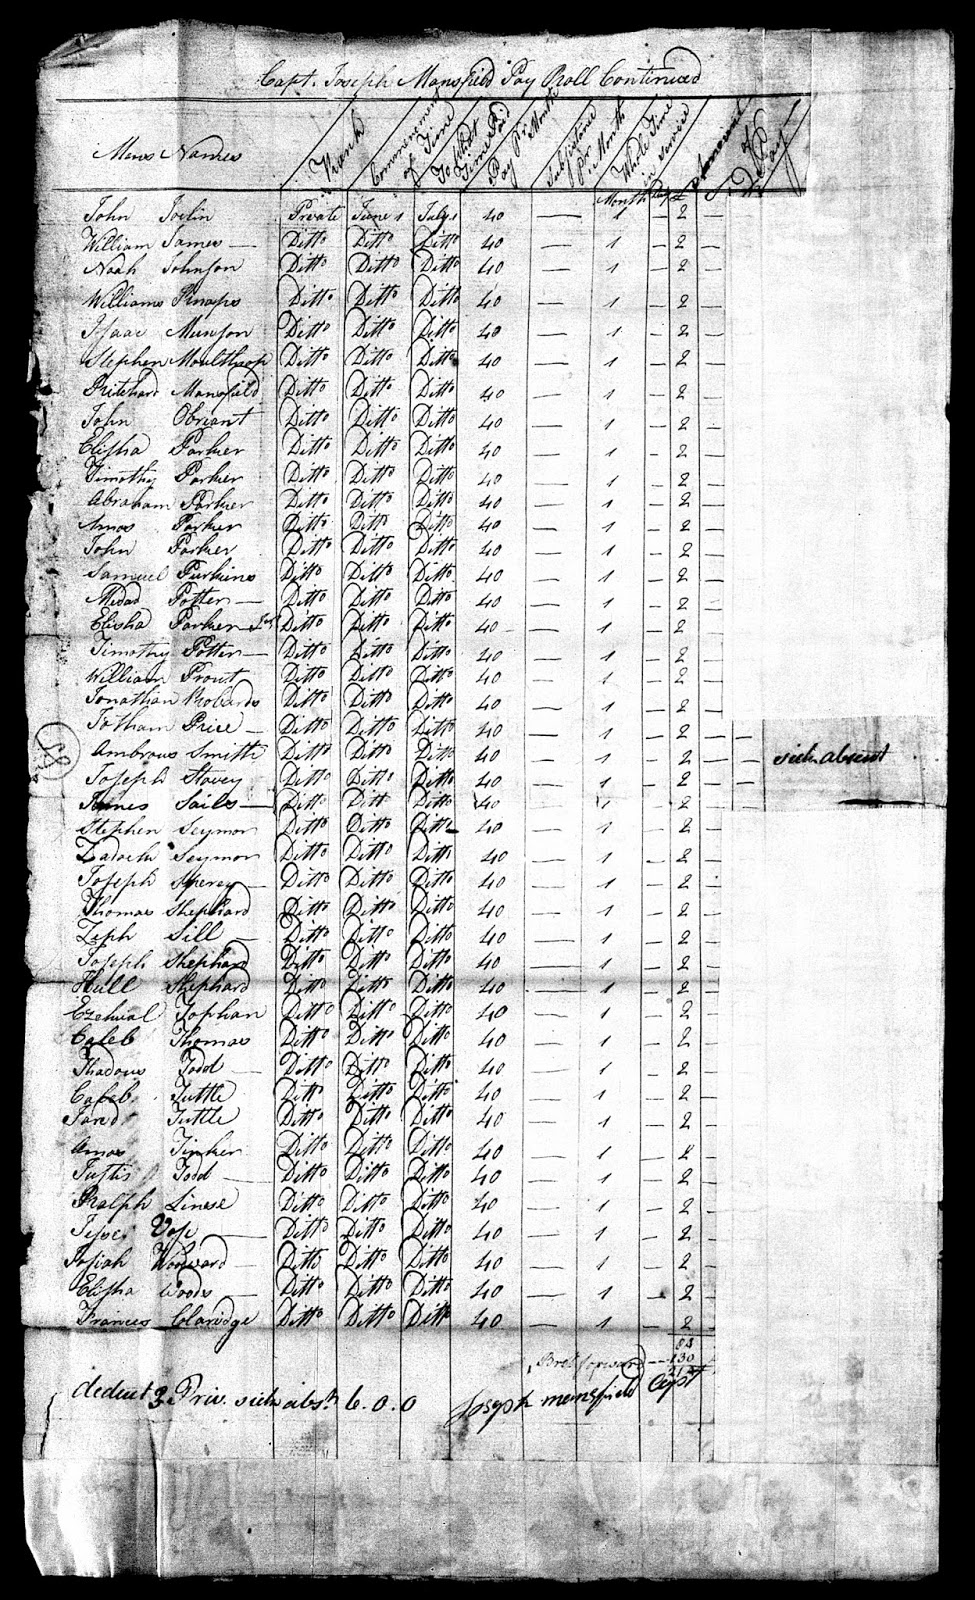 Capt. Joseph Mansfield Pay Roll Continued
Mens Names Rank Commencement of Time To what Time Paid Pay Pr Month Subsistance Pr. Month Whole Time in Service Amount of Pay
Month Days £ S
John Joslin Private June 1 July 1 40 — 1 — 2 —
William James — Ditto Ditto Ditto 40 — 1 — 2 —
Noah Johnson Ditto Ditto Ditto 40 — 1 — 2 —
Williams Ditto Ditto Ditto 40 — 1 — 2 —
Isaac Munson Ditto Ditto Ditto 40 — 1 — 2 —
Stephen Moulthrop Ditto Ditto Ditto 40 — 1 — 2 —
Pritchard Mansfield Ditto Ditto Ditto 40 — 1 — 2 —
John Obriant Ditto Ditto Ditto 40 — 1 — 2 —
Elisha Parker Ditto Ditto Ditto 40 — 1 — 2 —
Timothy Parker Ditto Ditto Ditto 40 — 1 — 2 —
Abraham Parker Ditto Ditt Ditto 40 — 1 — 2 —
Amos Parker Ditto Ditto Ditto 40 — 1 — 2 —
John Parker Ditto Ditt Ditto 40 — 1 — 2 —
Samuel Purkins Ditto Ditto Ditto 40 — 1 — 2
Medad Potter — Ditto Ditto Ditto 40 — 1 — 2 —
Elisha Parker Ditto Ditto Ditto 40 — 1 — 2
Timothy Potter — Ditto Ditto Ditto 40 — 1 — 2 —
William Prout Ditto Ditto Ditto 40 — 1 — 2 —
Jonathan Robards Ditto Ditto Ditto 40 — 1 — 2 —
Jotham Price — Ditto Ditto Ditto 40 — 1 — 2 — —
Ambrous Smith Ditto Ditto Ditto 40 — 1 — 2 — — sick absent
Joseph Stavey Ditto Ditto Ditto 40 — 1 — 2 — —
James Sails — Ditto Ditt Ditto 40 1 — 2 — —
Stephen Seymor Ditto Ditto Ditto 40 — 1 — 2
Zadock Seymor Ditto Ditto Ditto 40 — 1 — 2 —
Joseph Sperey — Ditto Ditto Ditto 40 — 1 — 2 —
Thomas Shephard Ditto Ditto Ditto 40 — 1 — 2 —
Zeph Sill — Ditto Ditto Ditto 40 — 1 — 2 —
Joseph Shephard Ditto Ditto Ditto 40 — 1 — 2 —
Hull Shephard Ditto Ditto Ditto 40 — 1 — 2 —
Ezekial Tophan Ditto Ditto Ditto 40 — 1 — 2
Caleb Thomas Ditto Ditto Ditto 40 — 1 — 2 —
Thadous Todd — Ditto Ditto Ditto 40 — 1 — 2 —
Caleb Tuttle Ditto Ditto Ditto 40 — 1 — 2 —
Jared Tuttle Ditto Ditto Ditto 40 — 1 — 2 —
Amos Tinker Ditto Ditto Ditto 40 — 1 — 2 —
Justis Todd — Ditto Ditto Ditto 40 — 1 — 2 —
Ralph Linese Ditto Ditto Ditto 40 — 1 — 2 —
Jesse Vose — Ditto Ditto Ditto 40 — 1 — 2 —
Josiah Woodward — Ditto Ditto Ditto 40 — 1 — 2 —
Elisha Woods — Ditto Ditto Ditto 40 — 1 — 2 —
Frances Claridge Ditto Ditto Ditto 40 — 1 — 2 —
Brot forward — 130
deduct 3 Priv. sick abst 6. 0. 0 Joseph mensfield Capt